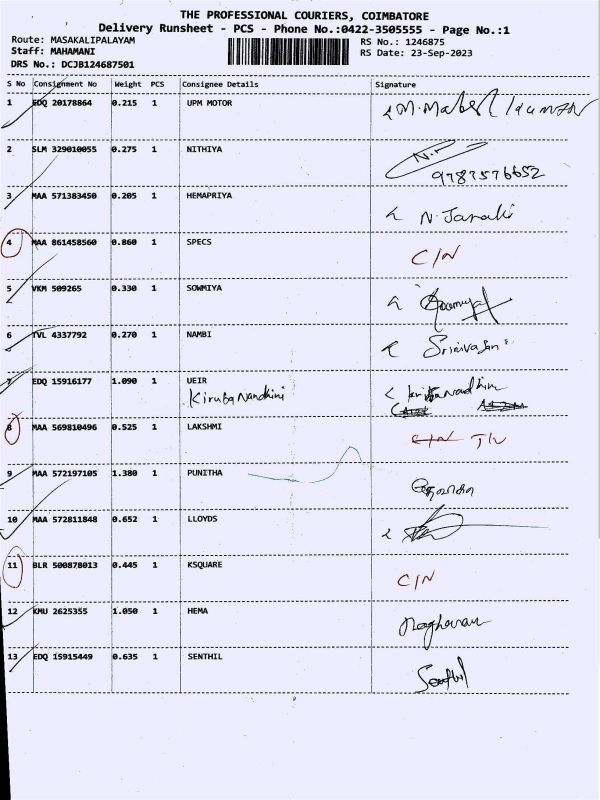 THE PROFESSIONAL COURIERS, COIMBATORE
Delivery Runsheet - PCS - Phone No.:0422-3505555 - Page No.:1
Route: MASAKALIPALAYAM
Staff: MAHAMANI
DRS No.: DCJB124687501
RS No.: 1246875
RS Date: 23-Sep-2023
S No Consignment No Weight PCS Consignee Details Signature
1 EDQ 20178864 0.215 1 UPM MOTOR
2 SLM 329010055 0.275 1 NITHIYA N.
9787576652
3 MAA 571383450 0.205 1 HEMAPRIYA N. Janaki
4 MAA 861458560 0.860 1 SPECS C/N
5 VKM 509265 0.330 1 SOWMIYA
6 TVL 4337792 0.270 1 NAMBI Srinivasan
7 EDQ 15916177 1.090 1 UEIR
Kirubanandhini
8 MAA 569810496 0.525 1 LAKSHMI C/N
9 MAA 572197105 1.380 1 PUNITHA
10 MAA 572811848 0.652 1 LLOYDS
11 BLR 500878013 0.445 1 KSQUARE C/N
12 KMU 2625355 1.050 1 HEMA Raghavan
13 EDQ 15915449 0.635 1 SENTHIL Senthil